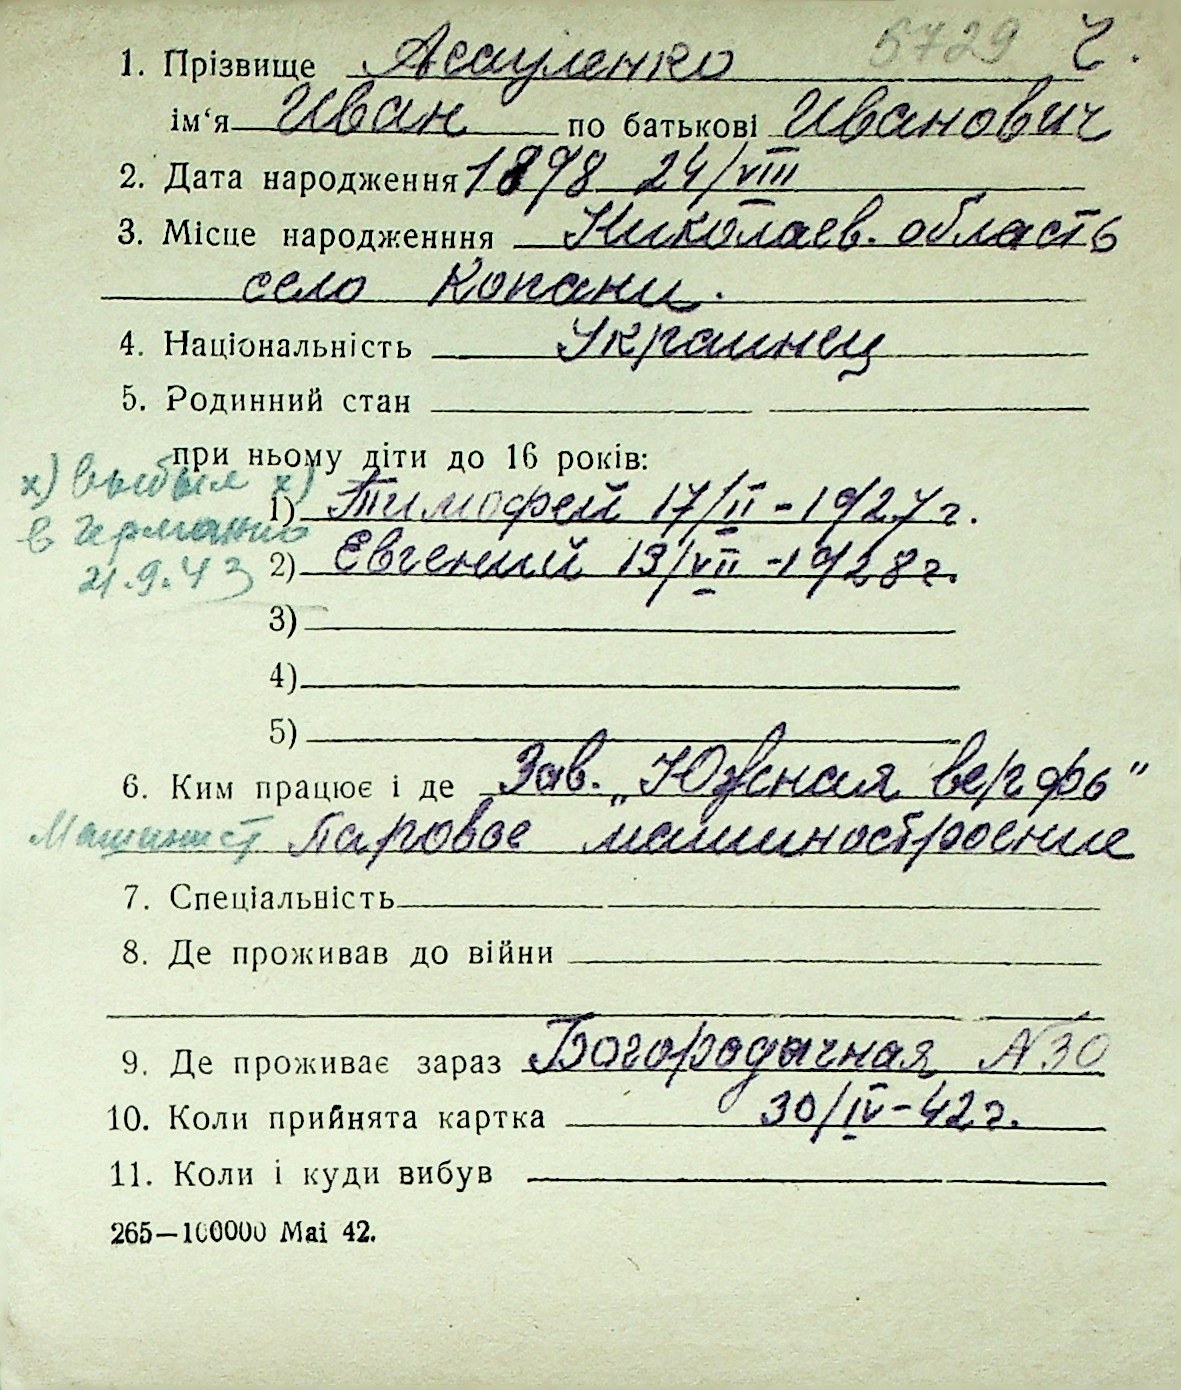 5729 Ч.
1. Прізвище Асауленко
ім‘я Иван по батькові Иванович
2. Дата народження 1898 24/VIII
3. Місце народженння Николаев. область
село Копани.
4. Національність Украинец
5. Родинний стан
при ньому діти до 16 років:
х) выбыл х)
1) Тимофей 17/II - 1927 г.
в Германию
2) Евгений 19/VII - 1928 г.
21.9.43
3)
4)
5)
6. Ким працює і де Зав. „Южная верфь"
Машинист Паровое машиностроение
7. Спеціальність
8. Де проживав до війни
9. Де проживає зараз Богородичная N 30
10. Коли прийнята картка 30/IV - 42 г.
11. Коли і куди вибув
265—100000 Mai 42.